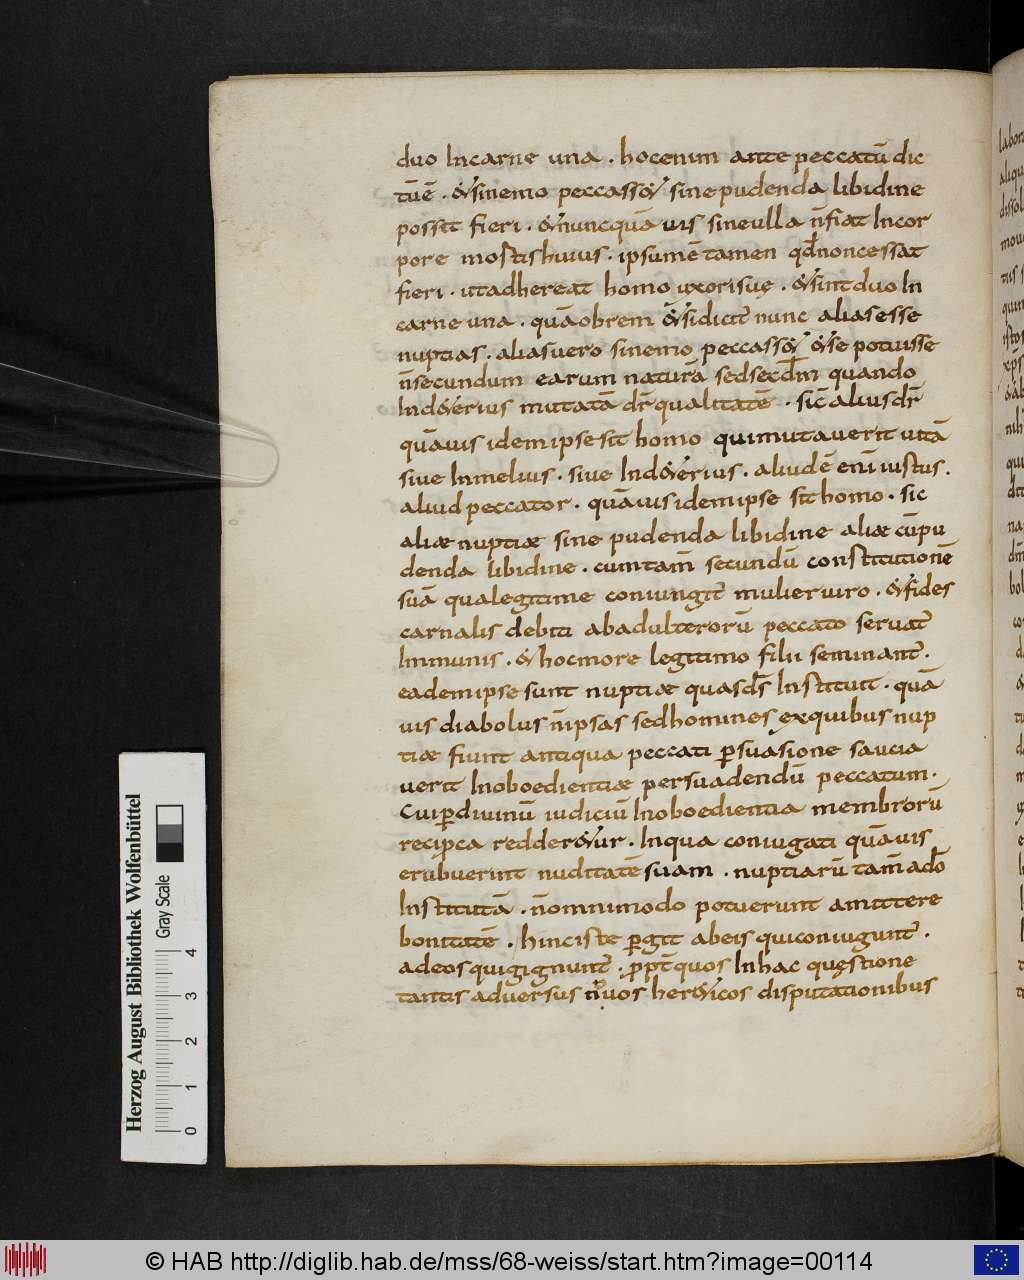 duo Incarne una . hocenim ante peccatū dic
tūē . &sinemo peccass& sine pudenda libidine
possit fieri . &nuncquā uis sineulla n̄fiat Incor
pore mostishuius . ipsumē tamen qd̄noncessat
fieri . utadhereat homo uxorisuę . &sintduo In
carne una . quāobrem &sidicit̄ nunc alias esse
nuptias . aliasuero sinemo peccass& &se potuisse
n̄secundum earum naturā sedsecdm̄ quando
Ind&erius mutatā dr̄ qualitatē . sic̄ aliusdr̄
quāuis idemipse sit homo quimutauerit uitā
siue Inmelius . siue Ind&erius . aliudē eni̅ iustus .
aliud peccator . quāuis idemipse sit homo . sic
aliæ nuptiæ sine pudenda libidine aliæ cūpu
denda libidine . cumtam̄ secundū constitutionē
suā qualegitime coniungit̄ mulieruiro . &fides
carnalis debiti abadulterorū peccato seruat̄
Inmunis . & hocmore legitimo filii seminant̄ .
eademipse sunt nuptiæ quasds̄ Instituit . quā
uis diabolus n̄ipsas sedhomines exquibus nup
tiæ fiunt antiqua peccati ꝑsuasione saucia
uerit Inoboedientiæ persuadendū peccatum .
Cuiꝑdiuinū iudiciū Inoboedientia membrorū
reciproca redder&ur . Inqua coniugati quāuis
erubuerint nuditatē suam . nuptiarū tam̄ ado̅
Institutā . n̄omnimodo potuerunt amittere
bonitatē . hinciste ꝑgit abeis quiconiugunt̄ .
adeos quigignunt̄ . ꝓpt̄ quos Inhac quęstione
tantis aduersus nouos her&icos disputationibus
Herzog August Bibliothek Wolfenbüttel
Gray Scale
0 1 2 3 4
© HAB http://diglib.hab.de/mss/68-weiss/start.htm?image=00114